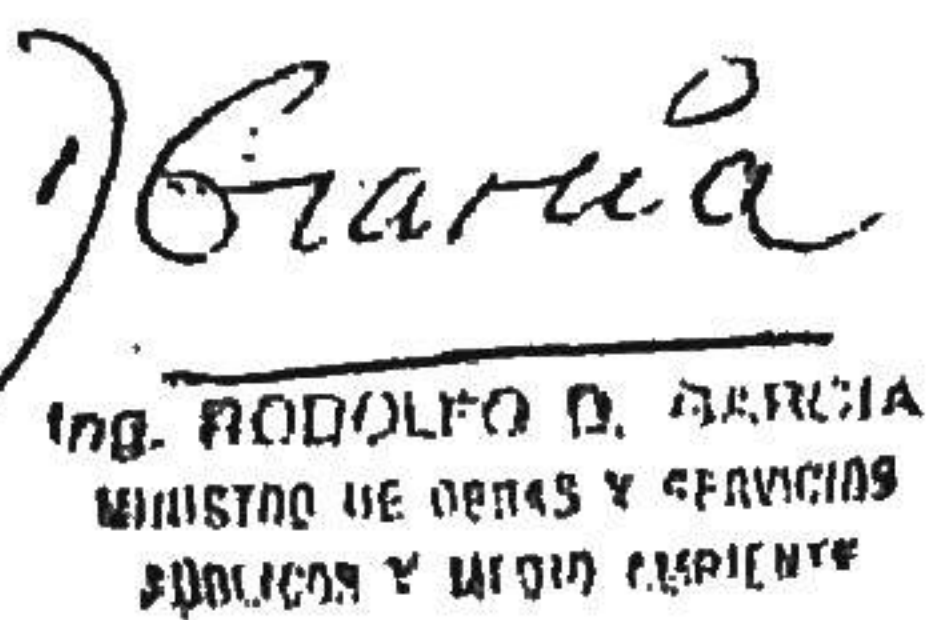 García
Ing. RODOLFO D. GARCIA
MINISTRO DE OBRAS Y SERVICIOS
PUBLICOS Y MEDIO AMBIENTE